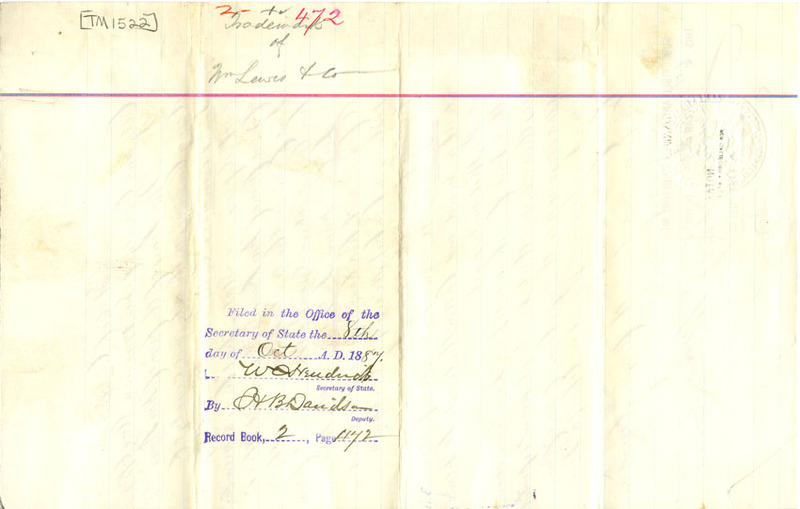 [TM1522]
472
Trademark
of
Wm Lewis & Co
Filed in the Office of the
Secretary of State the 8th
day of Oct A. D. 1887.
W C Hendricks
Secretary of State.
By H B Davidson
Deputy.
Record Book, 2, Page